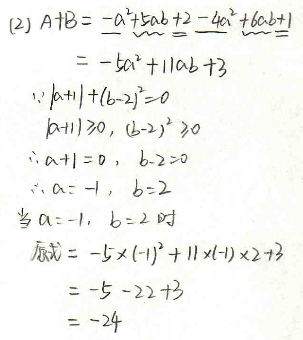 (2) A+B = -a²+5ab+2-4a²+6ab+1
= -5a²+11ab+3
∵ |a+1|+(b-2)²=0
|a+1|≥0, (b-2)²≥0
∴ a+1=0, b-2=0
∴ a=-1, b=2
当a=-1, b=2时
原式 = -5×(-1)²+11×(-1)×2+3
= -5-22+3
= -24